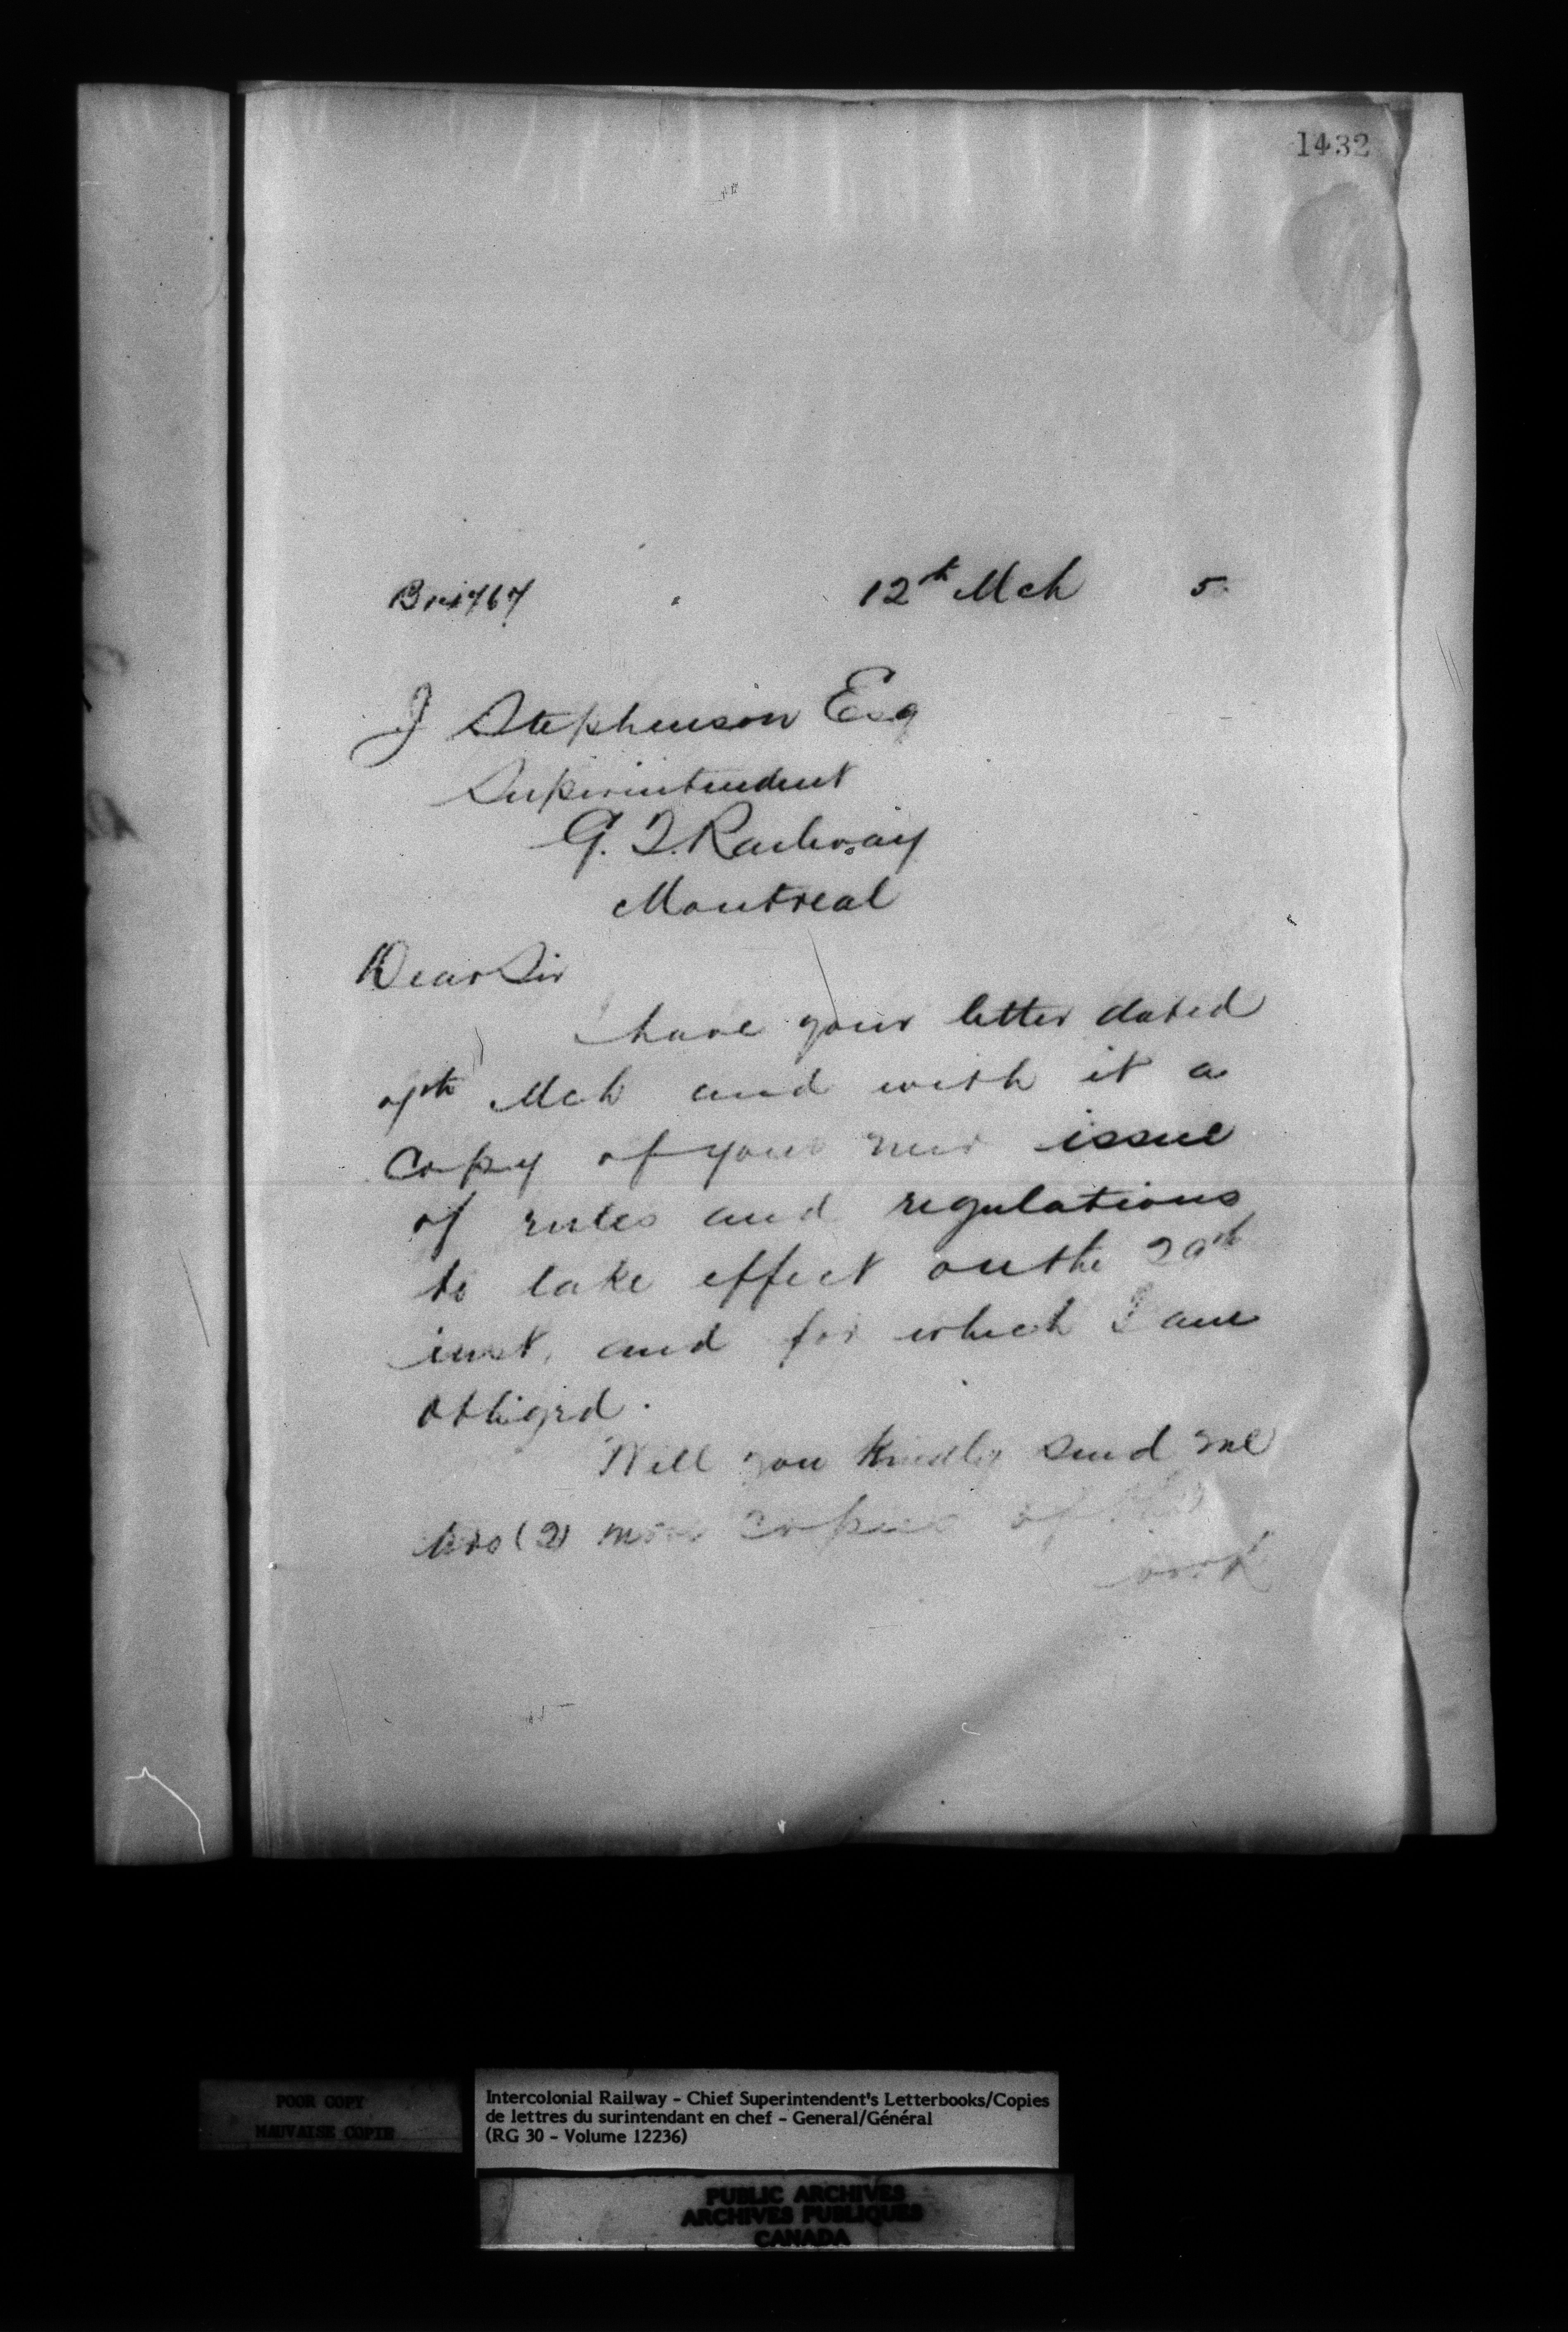 1432
12th Mch 5
J Stephenson Esq
Superintendent
G. T. Railway
Montreal
Dear Sir
I have your letter dated
7th Mch and with it a
copy of your new issue
of rules and regulations
to take effect on the
inst, and for which I am
obliged.
Will you kindly send me
two (2) more copies of
POOR COPY
MAUVAISE COPIE
Intercolonial Railway - Chief Superintendent's Letterbooks/Copies
de lettres du surintendant en chef - General/Général
(RG 30 - Volume 12236)
PUBLIC ARCHIVES
ARCHIVES PUBLIQUES
CANADA